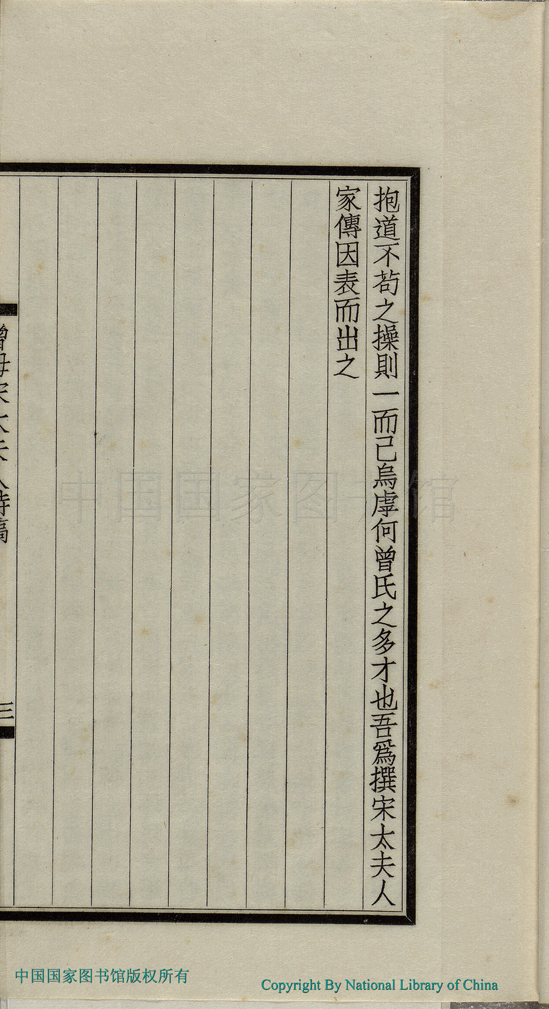 抱道不苟之操則一而已烏虖何曾氏之多才也吾爲撰宋太夫人
家傳因表而出之
曾母宋太夫人詩稿
三
中国国家图书馆
中国国家图书馆版权所有
Copyright By National Library of China